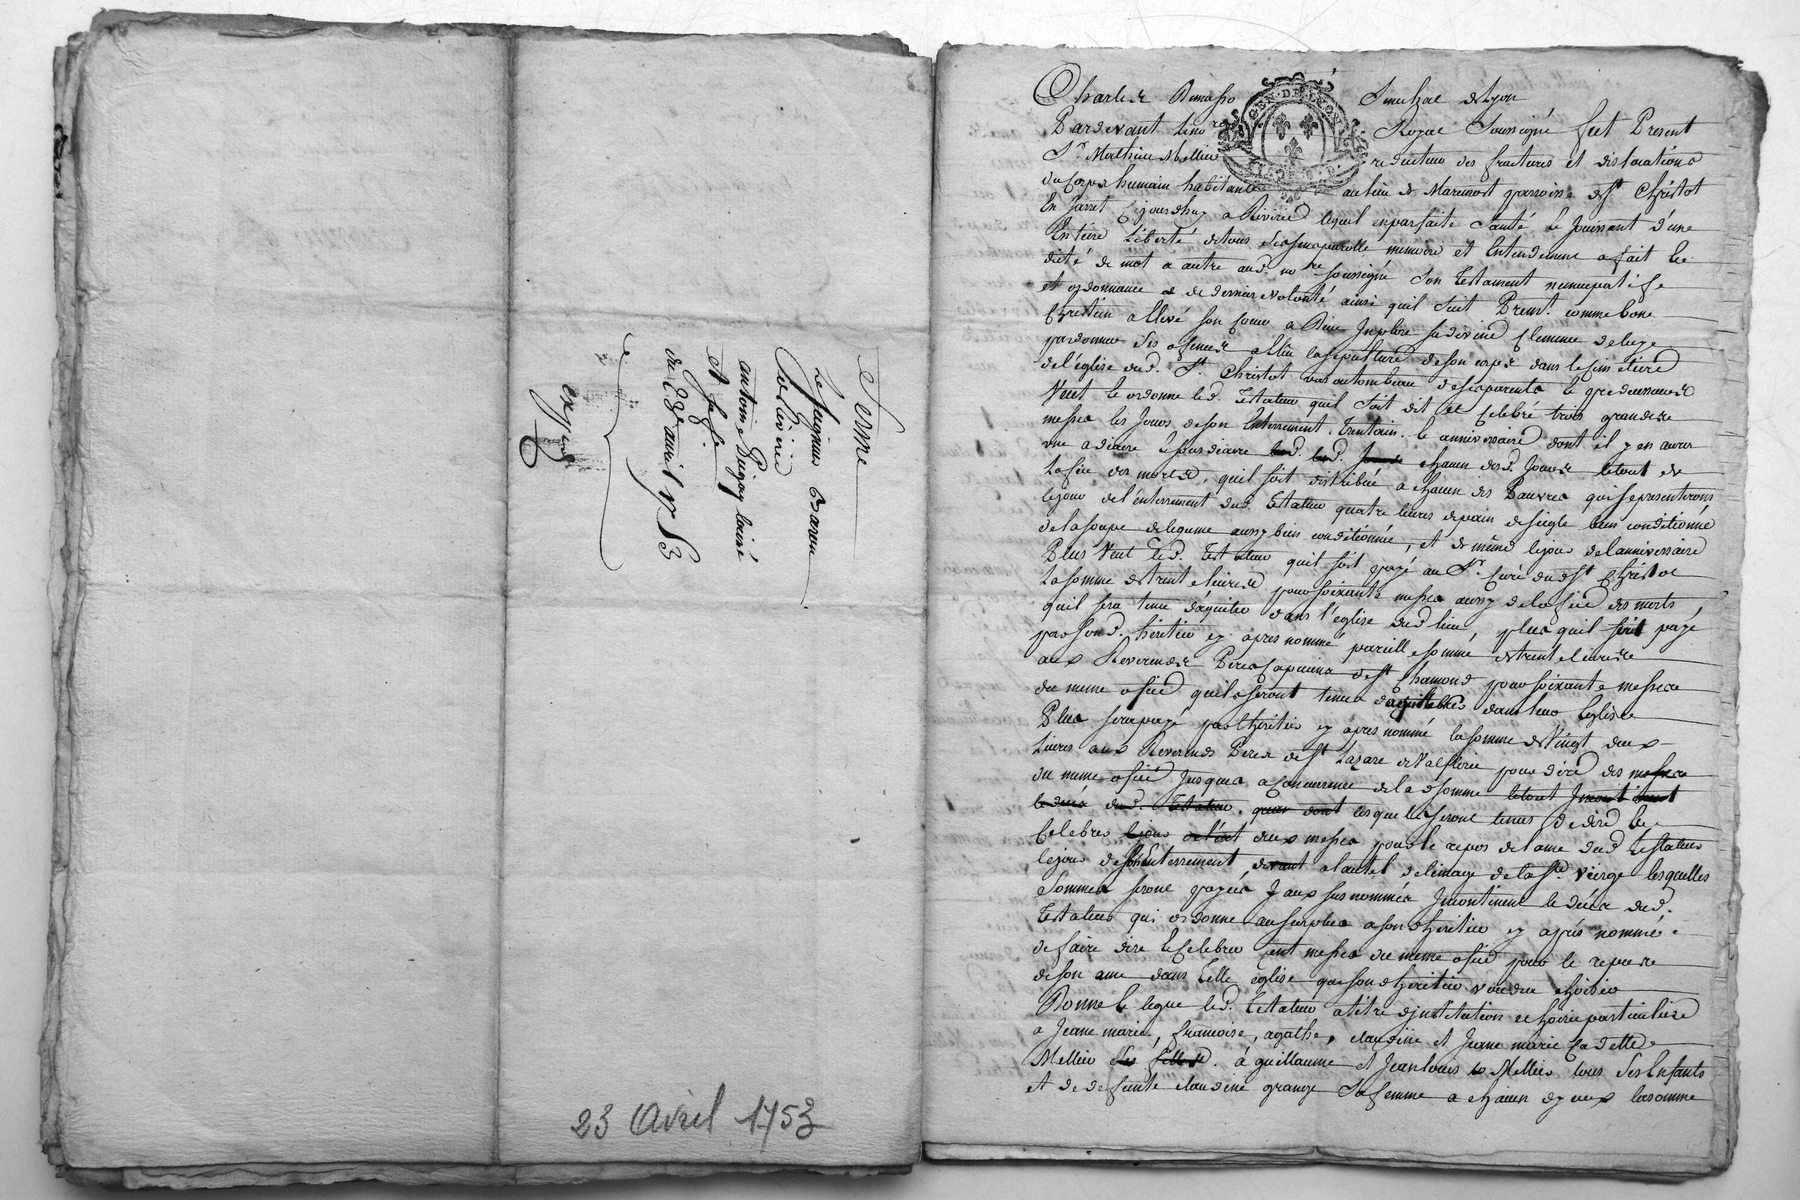 Ferme
Le seigneur Baron
de la Riviere
antoine Puzoz laine
et sa fe.
du 23e avril 1753
exped
23 avril 1753
GEN. DE LYON
Senechal de Lyon
Pardevant Le no re Royal Soussigné fut Present
Sr. Mathieu Mellier reducteur des fractures et dislocations
du Corps humain habitant au lieu de Maremost parroisse de st Christot
En Jarret Cejourdhuy a Riviere lequel en parfaite santé & Jouissant d'une
Entiere Liberté de tous ses sens parolle memoire et Entendement a fait &
dicté de mot a autre aud. no re soussigné son testament nuncupatif &
et ordonnance de derniere volonté ainsi quil suit Premt. comme bon
Chretien a Elevé son Coeur a Dieu Implore sa divine Clemence de luy
pardonner ses ofences Eslu la sepulture de son corps dans le simetiere
de l'église dud. St. Christot au tombeau de ses parents
Veut & ordonne led. Testateur quil soit dit et Celebré trois grandes
messes les Jours de son Enterrement, trentain & anniversaire dont il y en aura
une a diacre & sousdiacre chacun desd. Jours letout de
Lofice des morts, quil soit distribué a chacun des Pauvres qui se presenterons
lejour de l'enterrement dud. Testateur quatre livres de pain de seigle bien conditionné
de la soupe de legume aussy bien conditionnée, et de même lejour de l'anniversaire
Plus Veut led. Testateur quil soit payé au Sr. Curé dud st Christot
La somme de trente livres pour soixante messes aussy de lofice des morts
quil sera tenu daquiter dans l'église dud lieu, plus quil soit payé
par sond. héritier cy apres nommé pareille somme de trente livres
aux Reverends Peres Capucins de st Chamond pour soixante messes
du meme ofice quils seront tenus daquitter dans leur Eglise
Plus sera payé par lheritier cy après nommé la somme de vingt deux
Livres aux Reverends Peres de st Lazare de Valfleury pour dire des messes
du meme ofice Jusques a Concurrence de lad somme
lesquels seront tenus de dire &
Celebrer deux messes pour le repos de lame dud Testateur
lejour de son Enterrement a lautel de limage de la ste vierge lesquelles
Sommes seront payées aux sus nommés Incontinent le décès dud.
Testateur qui ordonne au surplus a son héritier cy après nommé
de faire dire & Celebrer cent messes du meme ofice pour le repos
de son ame dans telle église que sond héritier voudra choisir
Donne & legue led. Testateur a titre dinstitution et hoirie particuliere
a Jeane marie, francoise, agathe, claudine et Jeane marie Cadette
Mellier ses filles. à guillaume et Jean Louis Mellier tous ses Enfants
et de defunte claudine grange sa femme a chacun deux la somme